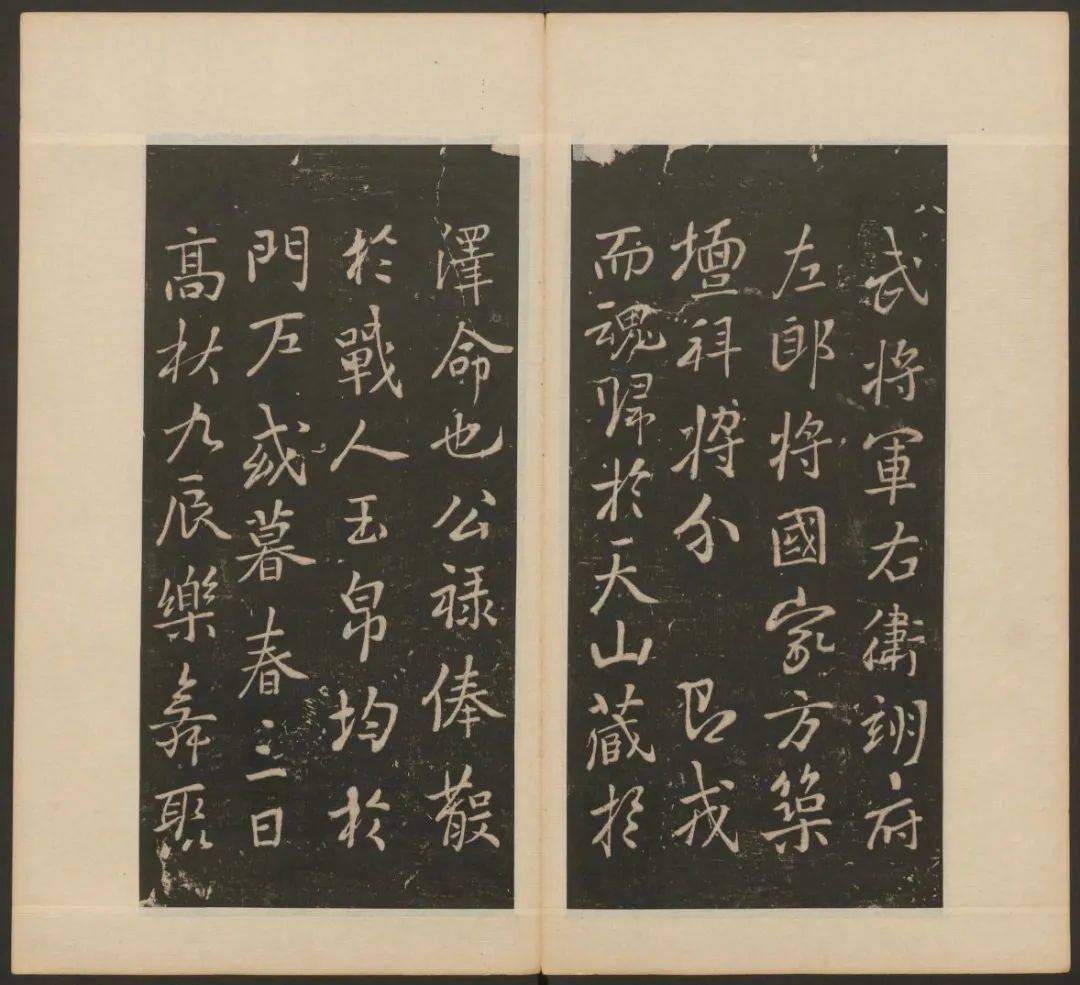 八
武将軍右衛翊府
左郎将國家方築
壇拜将分戎
而魂歸於天山藏於
澤命也公禄俸散
於戰人玉帛均於
門下或暮春三日
高秋九辰樂舞聚